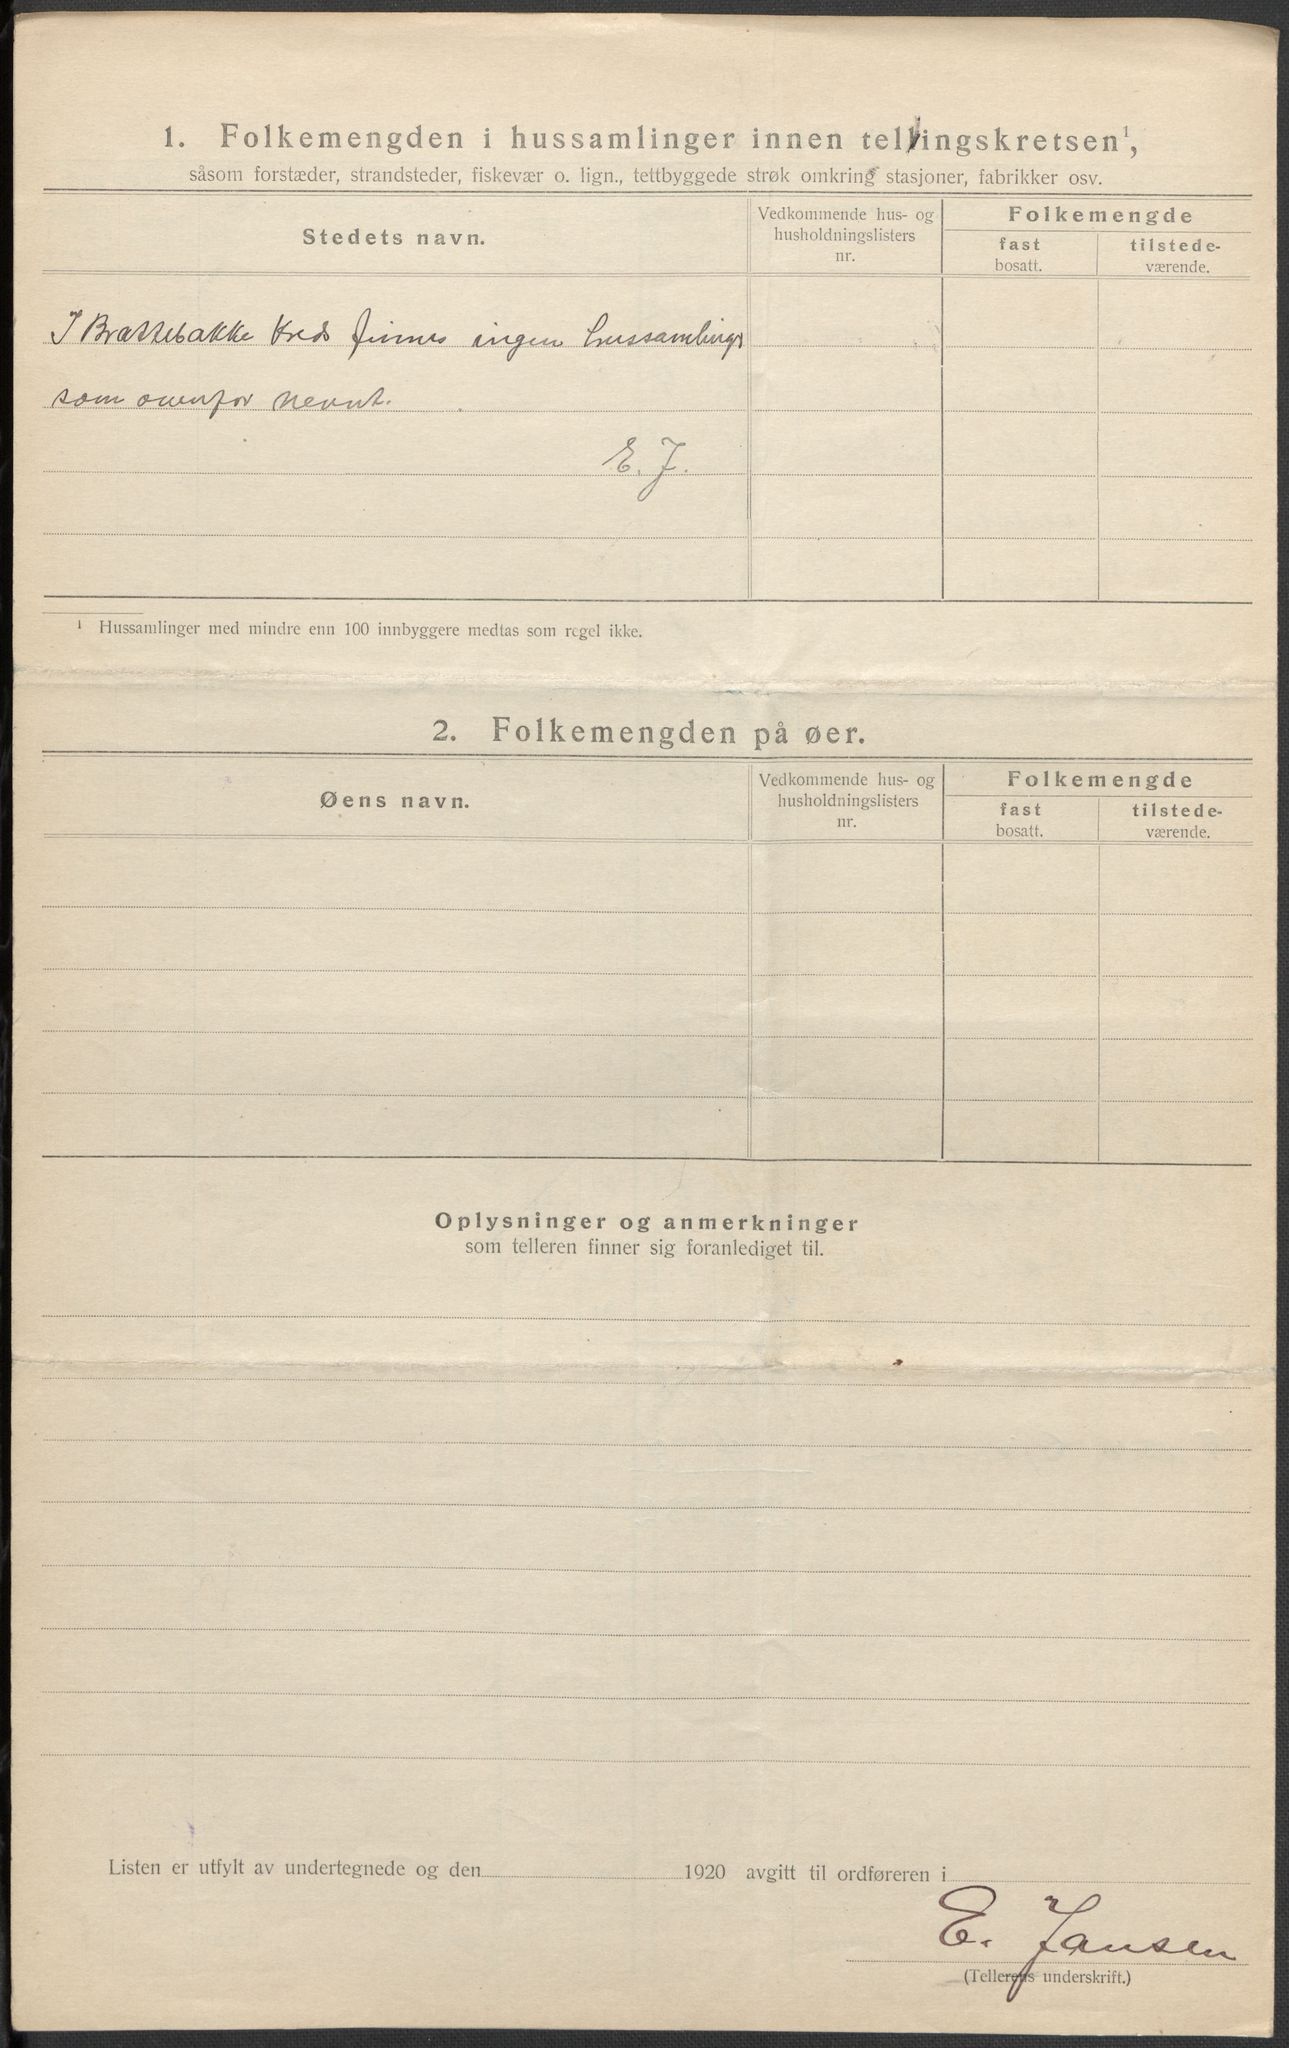 1. Folkemengden i hussamlinger innen tellingskretsen¹,
såsom forstæder, strandsteder, fiskevær o. lign., tettbyggede strøk omkring stasjoner, fabrikker osv.
Stedets navn.
Vedkommende hus- og
husholdningslisters
nr.
Folkemengde
fast
bosatt.
tilstede-
værende.
I Brattebakke Kreds finnes ingen hussamlinger
som ovenfor nevnt.
E. J.
¹ Hussamlinger med mindre enn 100 innbyggere medtas som regel ikke.
2. Folkemengden på øer.
Øens navn.
Vedkommende hus- og
husholdningslisters
nr.
Folkemengde
fast
bosatt.
tilstede-
værende.
Oplysninger og anmerkninger
som telleren finner sig foranlediget til.
Listen er utfylt av undertegnede og den 1920 avgitt til ordføreren i
E. Jansen
(Tellerens underskrift.)